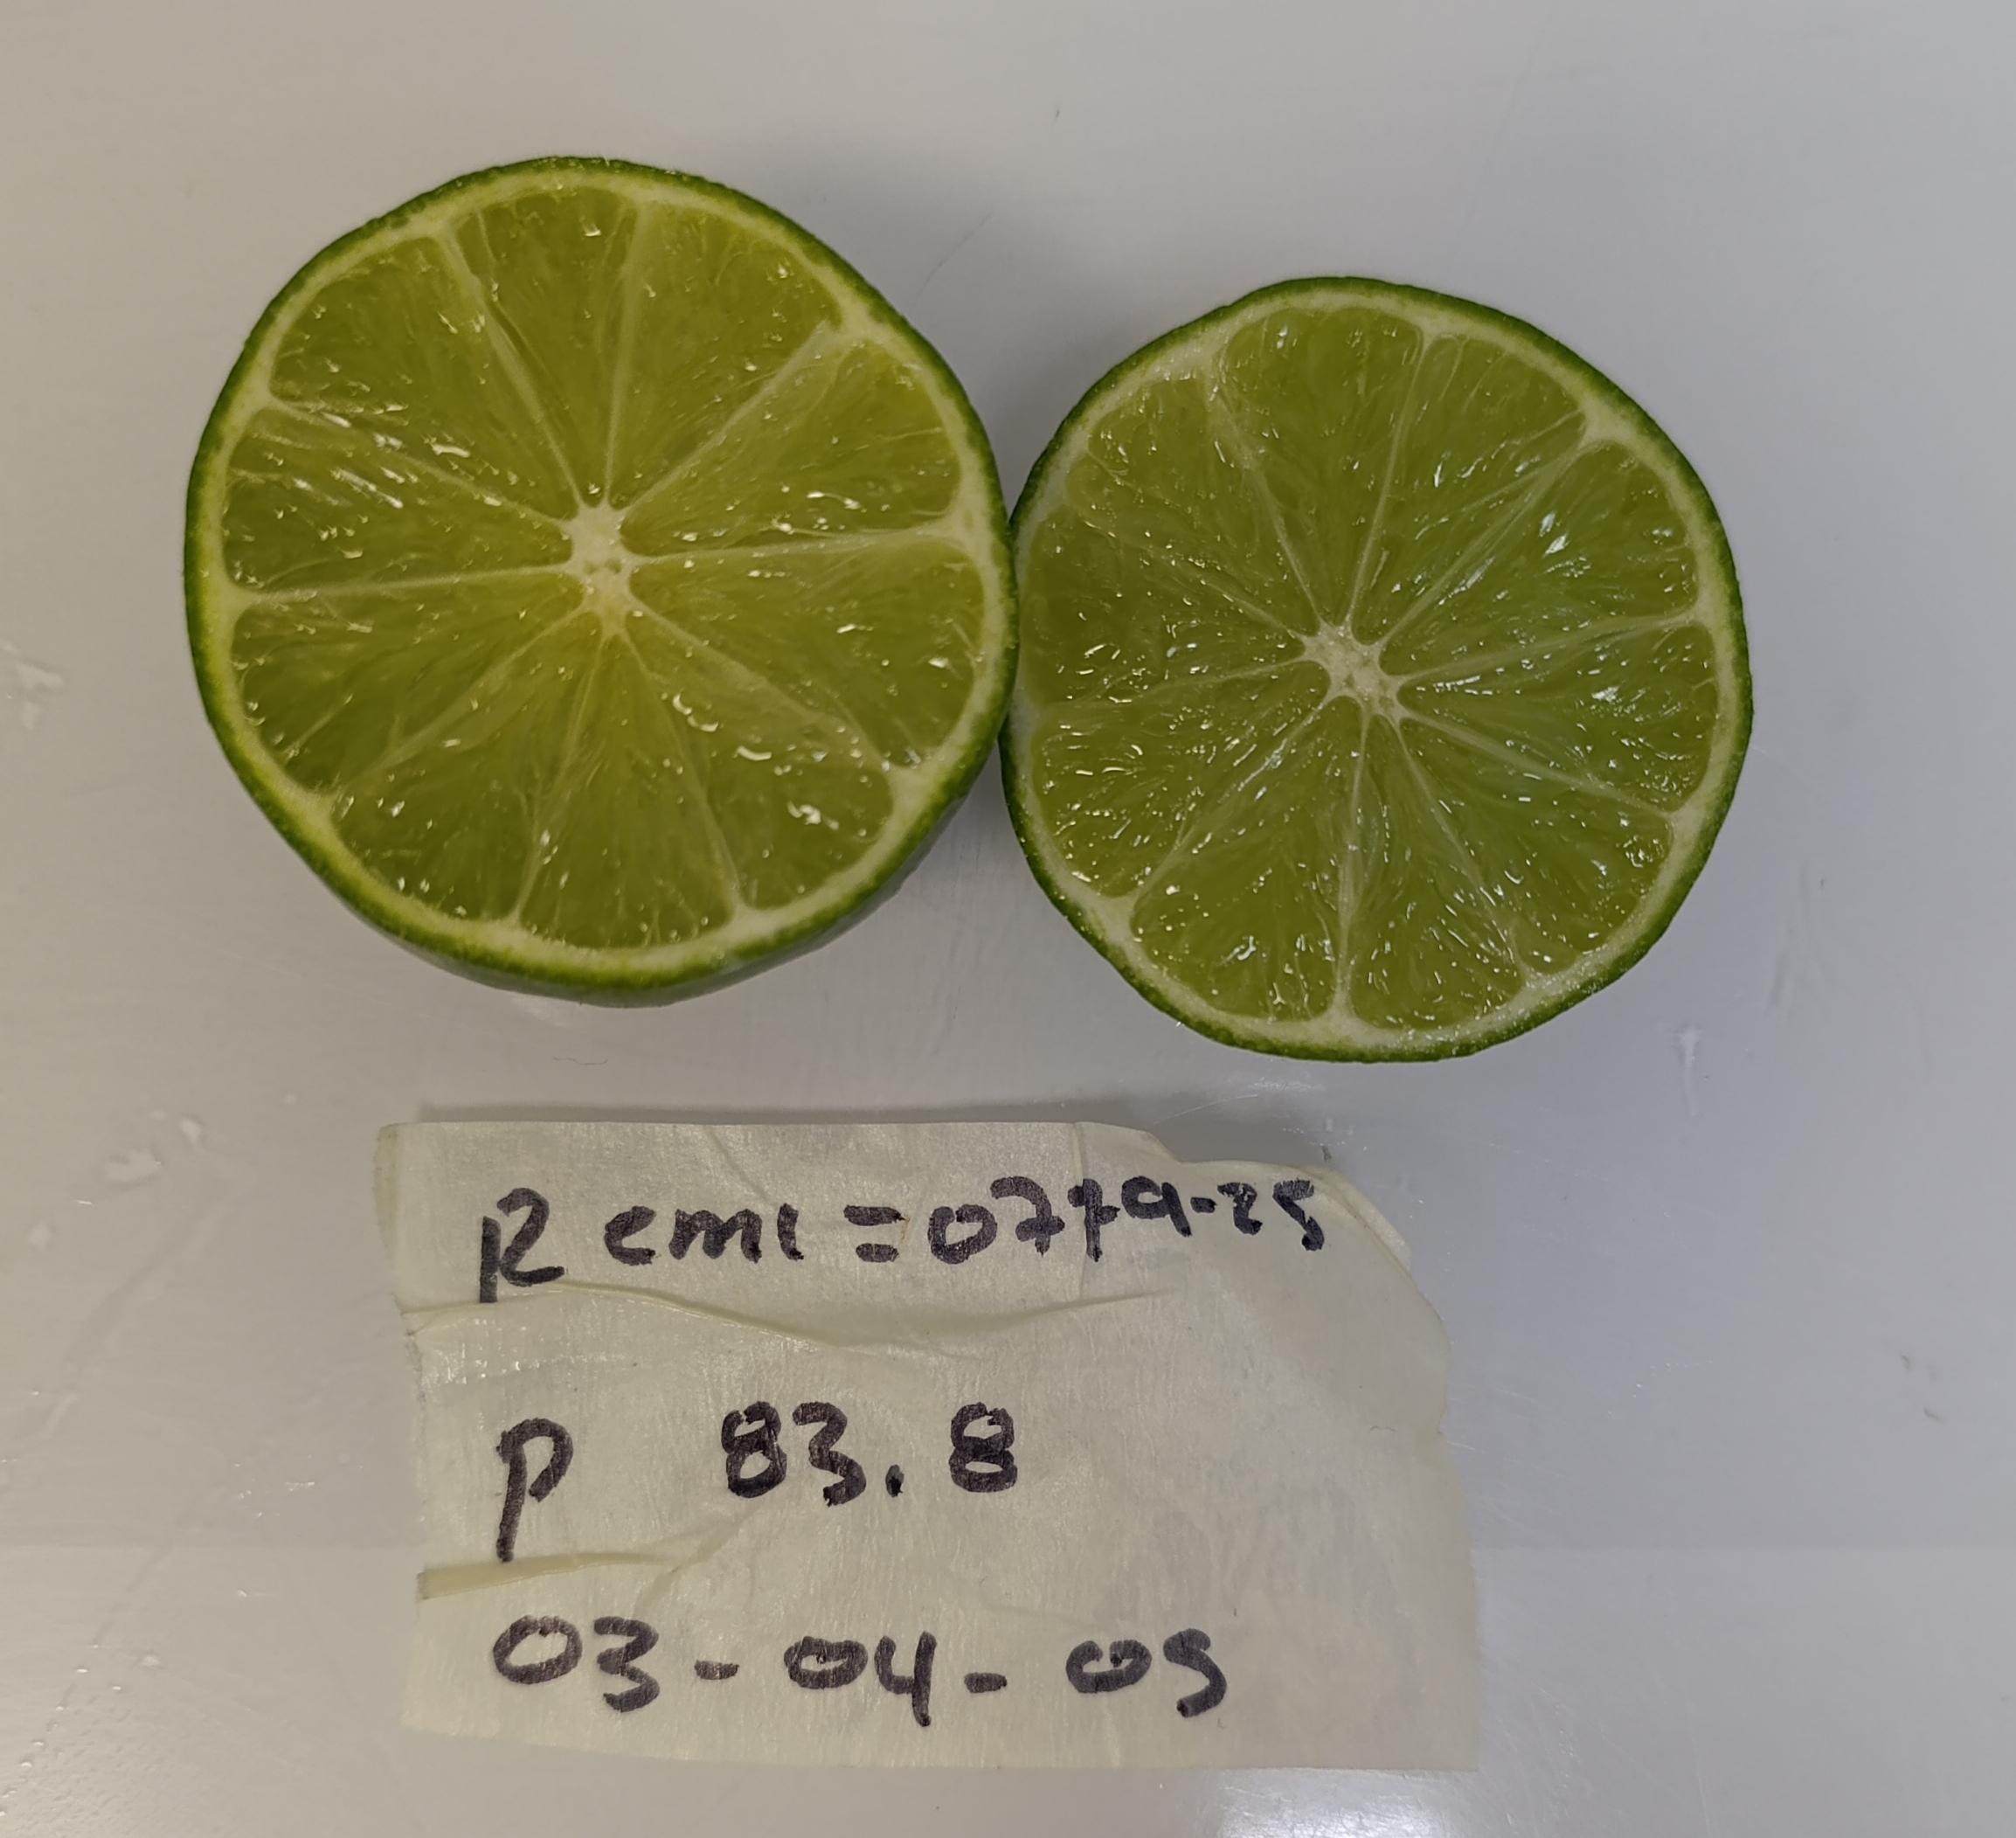 Remi=0779-25
P 83.8
03-04-05